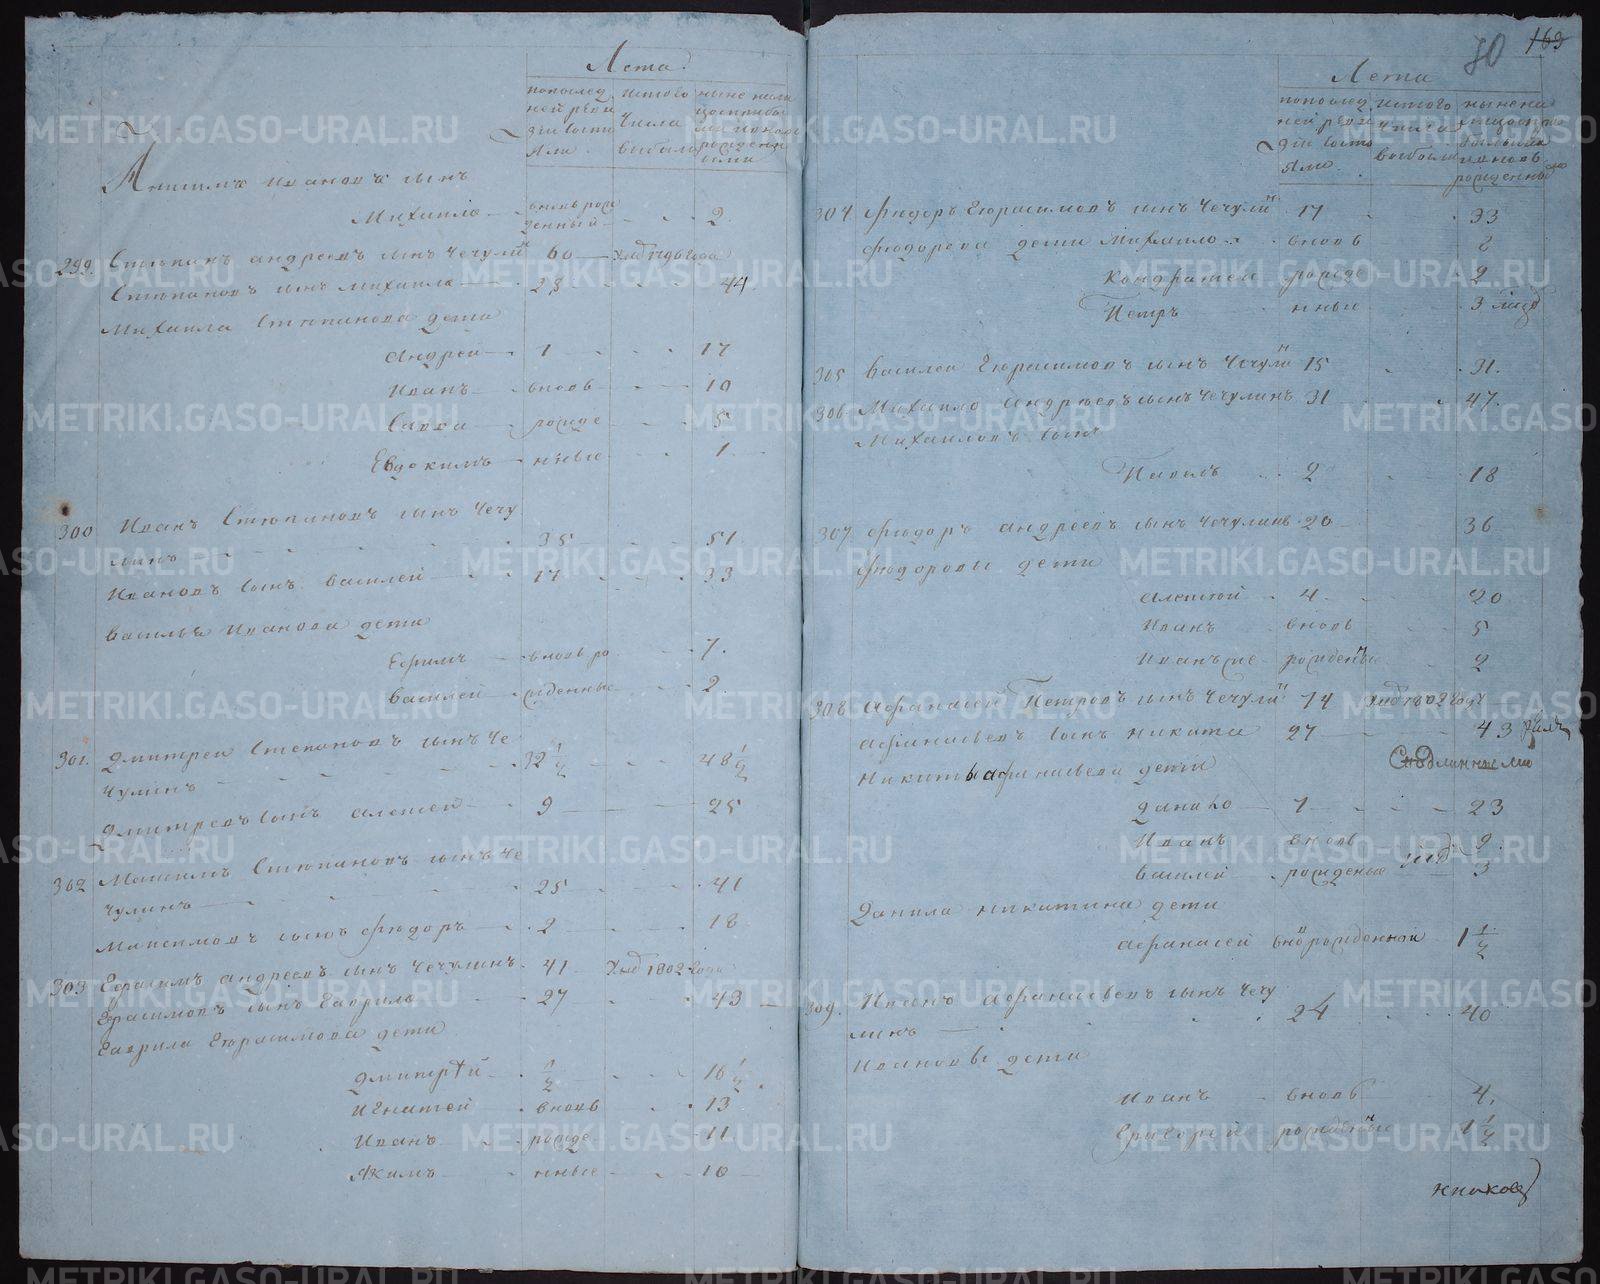 Лета
попослед ней ревизіи состояли
истого числа выбыло
Анисимъ Ивановъ сынъ
Михаило вновь рожденный 2
299. Степанъ Андреевъ сынъ Чечулинъ 60 1796 года
Степановъ сынъ Михаила 28 44
Михаила Степанова дети
Андрей 1 17
Иванъ вновь 10
Савва рожде 5
Евдокимъ нные 1
300 Иванъ Степановъ сынъ Чечу
линъ 35 51
Ивановъ сынъ Василей 17 33
Василья Иванова дети
Ефимъ вновь ро 7.
Василей жденные 2.
301. Дмитреи Степановъ сынъ Че
чулинъ 32 1/2 48 1/2
Дмитревъ сынъ Алексей 9 25
302 Максимъ Степановъ сынъ Че
чулинъ 25 41
Максимовъ сынъ Фёдоръ 2 18
303 Герасимъ Андреевъ сынъ Чечулинъ 41 1802 года
Герасимовъ сынъ Гаврила 27 43
Гаврила Герасимова дети
Дмитрей 1/2 16 1/2
Игнатей вновь 13
Иванъ рожде 11
Якимъ нные 10
163
70
Лета
попослед ней ревизіи состояли
истого числа выбыло
304 Фёдоръ Герасимовъ сынъ Чечулинъ 17 33
Фёдорова дети Михаило вновь
Кондратей рожде 2
Петръ нные 3
305 Василей Герасимовъ сынъ Чечулинъ 15 31.
306. Михаило Андреевъ сынъ Чечулинъ 31 47.
Михаиловъ сынъ
Павелъ 2 18
307 Фёдоръ Андреевъ сынъ Чечулинъ 20 36
Фёдоровы дети
Алексей 4 20
Иванъ вновь 5
Иванъ же рожденные 2
308 Афанасей Петровъ сынъ Чечулинъ 74 1802 году
Афанасьевъ сынъ Никита 27 43
Никиты Афанасьева дети
Данило 7 23
Иванъ вновь 9
Василей рожденые 3
Данила Никитина дети
Афанасей вновь рожденной 1 1/2
309. Иванъ Афанасьевъ сынъ Чечу
линъ 24 40
Ивановы дети
Иванъ вновь 4.
Григорей рожденные 1 1/2
METRIKI.GASO-URAL.RU